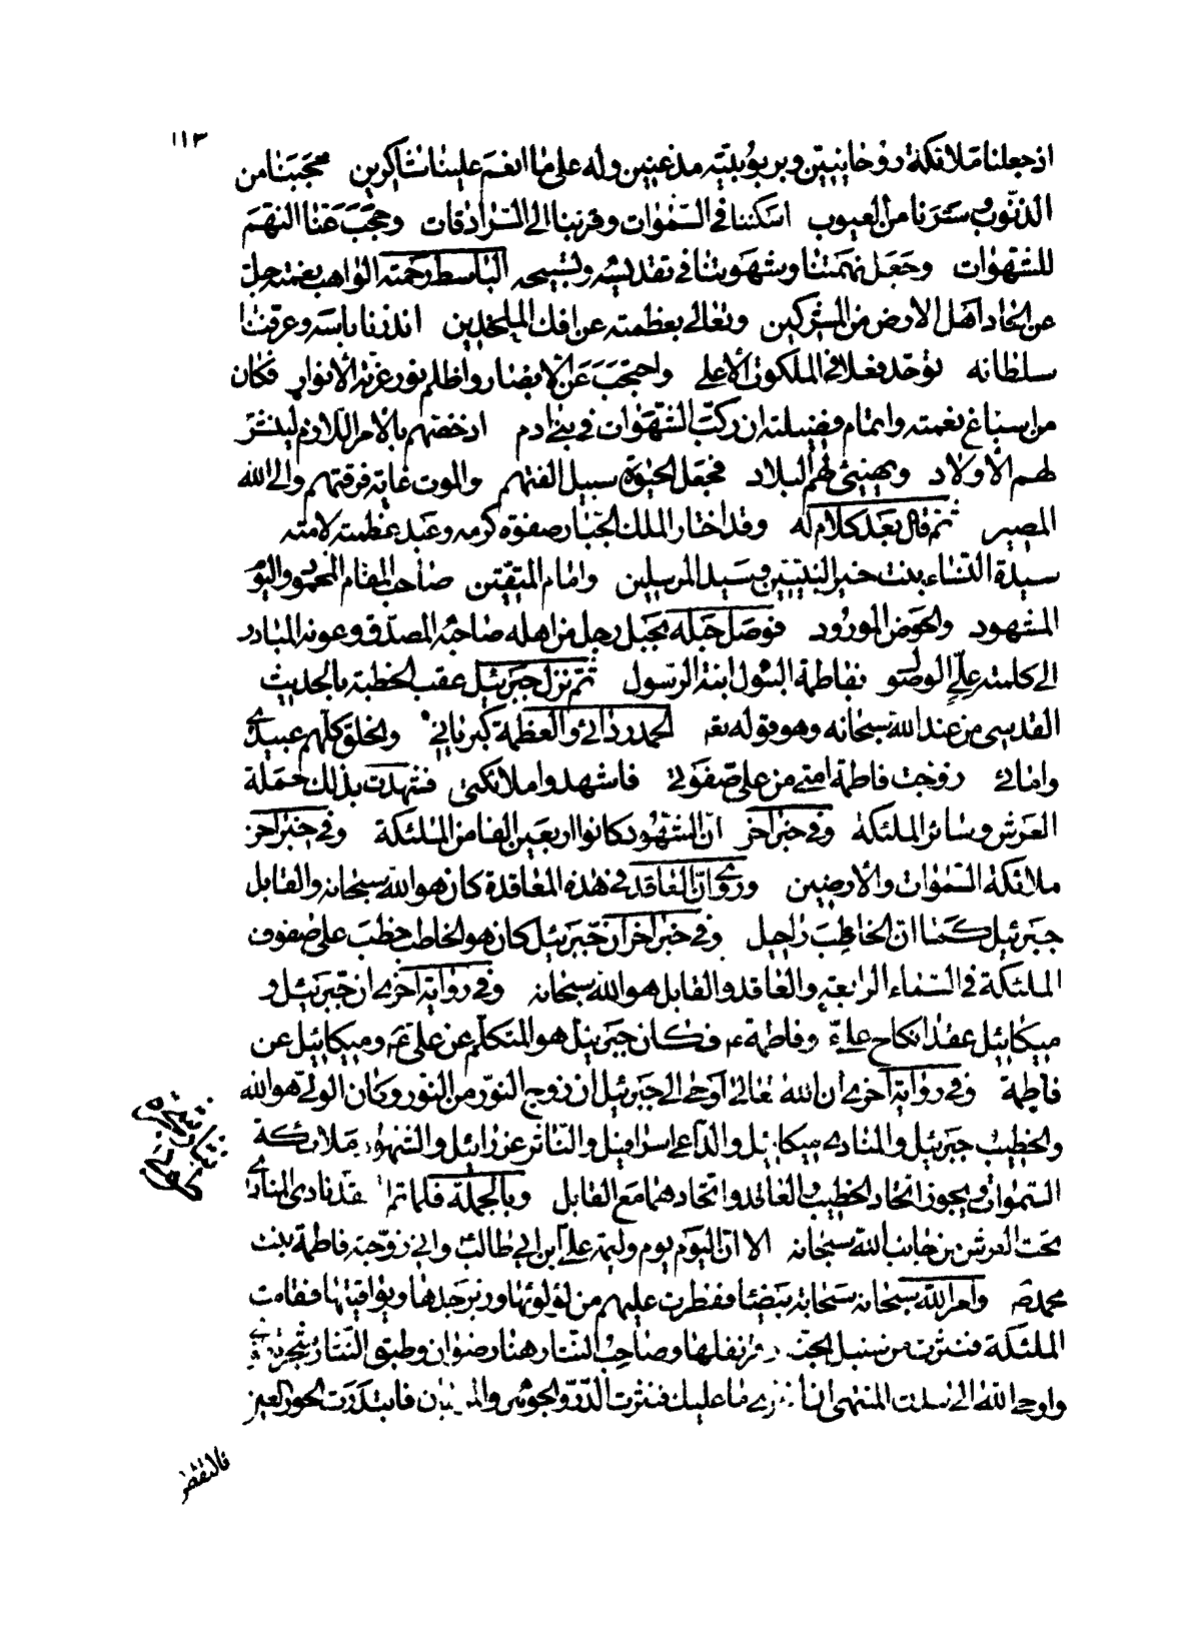 ١١٣
اذ جعلنا ملائكة روحانيين وبربوبيته مذعنين وله على ما انعم علينا شاكرين محجبنا من
الذنوب وسترنا من العيوب اسكننا فى السموات وقربنا الى السرادقات وحجب عنا النهم
للشهوات وجعل نهمتنا وشهوتنا فى تقديسه وتسبيحه الباسط رحمته الواهب نعمته جل
عن الحاد اهل الارض من المشركين وتعالى بعظمته عن افك الملحدين انذرنا باسه وعرفنا
سلطانه توحد فعلا فى الملكوت الأعلى واحتجب عن الأبصار واظلم نور عزته الأنوار فكان
من اسباغ نعمته واتمام فضيلته ان ركب الشهوات فى بنى ادم اذ خصهم بالأمر اللازم لينشر
لهم الأولاد ويهيئ لهم البلاد فجعل الحيوة سبيل الفتهم والموت غاية فرقتهم والى الله
المصير ثم قال بعد كلام له وقد اختار الملك الجبار صفوة كرمه وعبد عظمته لامته
سيدة النساء بنت خير النبيين وسيد المرسلين وامام المتقين صاحب المقام المحمود واليوم
المشهود والحوض المورود فوصل حبله بحبل رجل من اهله صاحبه المصدق دعوته المبادر
الى كلمته على الوصو بفاطمة البتول ابنة الرسول ثم نزل جبرئيل عقب الخطبة بالحديث
القدسى من عند الله سبحانه وهو قوله تعه الحمد ردائى والعظمة كبريائى والخلق كلهم عبيدى
وامائى زوجت فاطمة امتى من على صفوتى فاشهدوا ملائكتى فشهدت بذلك حملة
العرش وسائر الملئكة وفى خبر اخر ان الشهود كانوا اربعين الفا من الملئكة وفى خبر اخر
ملائكة السموات والأرضين وروى ان العاقد فى هذه المعاقدة كان هو الله سبحانه والقابل
جبرئيل كما ان الخاطب راحيل وفى خبر اخر ان جبرئيل كان هو الخاطب خطب على صفوف
الملئكة فى السماء الرابعة والعاقد والقابل هو الله سبحانه وفى رواية اخرى ان جبرئيل و
ميكائيل عقدا نكاح على ع وفاطمة ع فكان جبرئيل هو المتكلم عن على ع وميكائيل عن
فاطمة وفى رواية اخرى ان الله تعالى اوحى الى جبرئيل ان زوج النور من النور وكان الولى هو الله
والخطيب جبرئيل والمنادى ميكائيل والداعى اسرافيل والناثر عزرائيل والشهود ملائكة
السموات ويجوز اتحاد الخطيب والعاقد واتحادهما مع القابل وبالجملة فلما تم العقد نادى المنادى
تحت العرش من جانب الله سبحانه الا ان اليوم يوم وليمة على ابن ابى طالب وانى زوجته فاطمة بنت
محمد ص وامر الله سبحانه سحابة بيضا فقطرت عليهم من لؤلؤئها وزبرجدها ويواقيتها فقامت
الملئكة فنثرت من سنبل الجنة وقرنفلها وصاحب النثار هنا رضوان وطبق النثار شجرة طوبى
واوحى الله الى سدرة المنتهى ان انثرى ما عليك فنثرت الدر والجوهر والمرجان فابتدرت الحور العين
فالتقطن